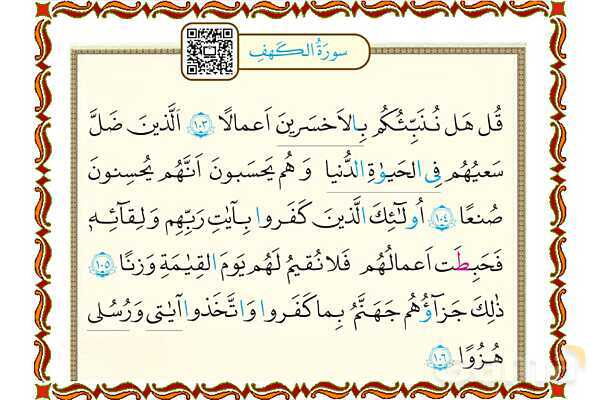 سورَةُ الكَهفِ
قُل هَل نُنَبِّئُكُم بِالاَخسَرينَ اَعمالًا ﴿١٠٣﴾ اَلَّذينَ ضَلَّ
سَعيُهُم فِى الحَيوٰةِ الدُّنيا وَ هُم يَحسَبونَ اَنَّهُم يُحسِنونَ
صُنعًا ﴿١٠٤﴾ اُولٰئِكَ الَّذينَ كَفَروا بِـٔايٰتِ رَبِّهِم وَ لِقآئِهٖ
فَحَبِطَت اَعمالُهُم فَلا نُقيمُ لَهُم يَومَ القِيٰمَةِ وَزنًا ﴿١٠٥﴾
ذٰلِكَ جَزآؤُهُم جَهَنَّمُ بِما كَفَروا وَاتَّخَذوا ءايٰتى وَ رُسُلى
هُزُوًا ﴿١٠٦﴾